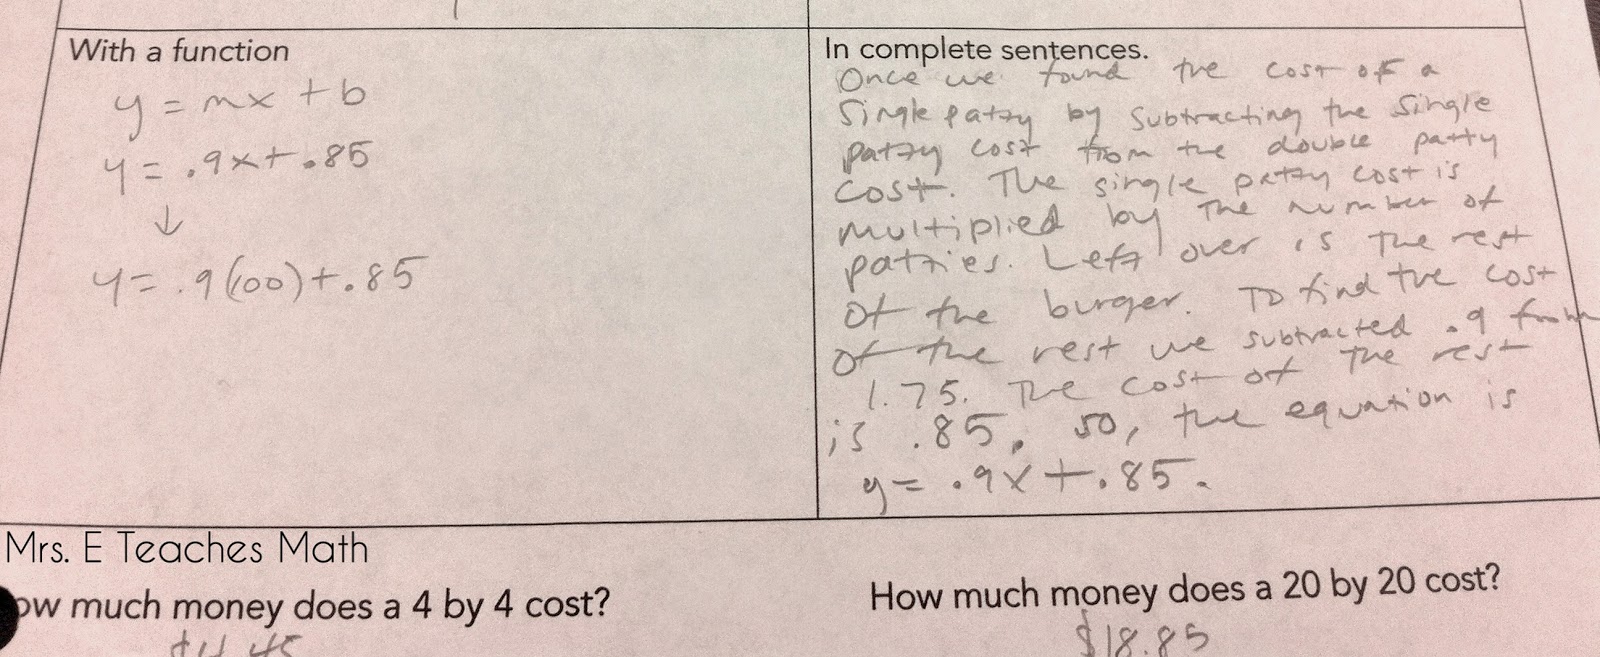 With a function
y = mx + b
y = .9x + .85
↓
y = .9(100) + .85
In complete sentences.
Once we found the cost of a
single patty by subtracting the single
patty cost from the double patty
cost. The single patty cost is
multiplied by the number of
patties. Left over is the rest
of the burger. To find the cost
of the rest we subtracted .9 from
1.75. The cost of the rest
is .85. so, the equation is
y = .9x + .85.
Mrs. E Teaches Math
ow much money does a 4 by 4 cost?
$4.45
How much money does a 20 by 20 cost?
$18.85